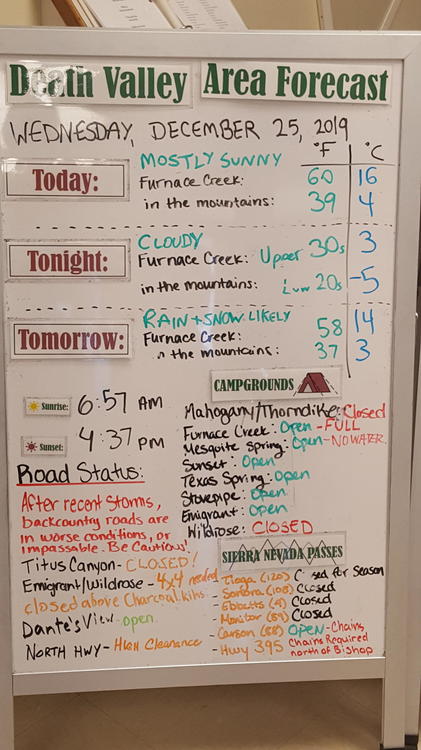 Death Valley Area Forecast
WEDNESDAY, DECEMBER 25, 2019
°F °C
Today:
MOSTLY SUNNY
Furnace Creek: 60 16
in the mountains: 39 4
Tonight:
CLOUDY
Furnace Creek: Upper 30s 3
in the mountains: Low 20s -5
Tomorrow:
RAIN + SNOW LIKELY
Furnace Creek: 58 14
n the mountains: 37 3
Sunrise: 6:57 AM
Sunset: 4:37 PM
Road Status:
After recent storms,
backcountry roads are
in worse conditions, or
impassable. Be Cautious!
Titus Canyon - CLOSED!
Emigrant/Wildrose - 4x4 needed
closed above Charcoal kilns
Dante's View - open
NORTH HWY - High Clearance
CAMPGROUNDS
Mahogany/Thorndike: Closed
Furnace Creek: Open - FULL
Mesquite Spring: Open - NO WATER
Sunset: Open
Texas Spring: Open
Stovepipe: Open
Emigrant: Open
Wildrose: CLOSED
SIERRA NEVADA PASSES
- Tioga (120) C sed for Season
- Sonora (108) Closed
- Ebbetts (4) Closed
- Monitor (89) Closed
- Carson (88) OPEN - Chains
- Hwy 395 Chains Required
north of Bishop